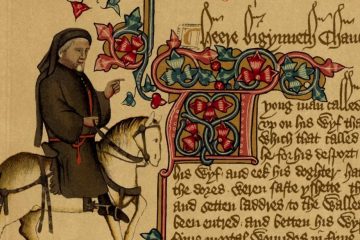 Heere bigynneth Chau
A yong man called
vp on his wyf tha
which that called
he for his desport
his wyf and eek his doghter ha
the dores weren faste yshette
and setten laddres to the walles
been entred and betten his wy
mortal woundes in